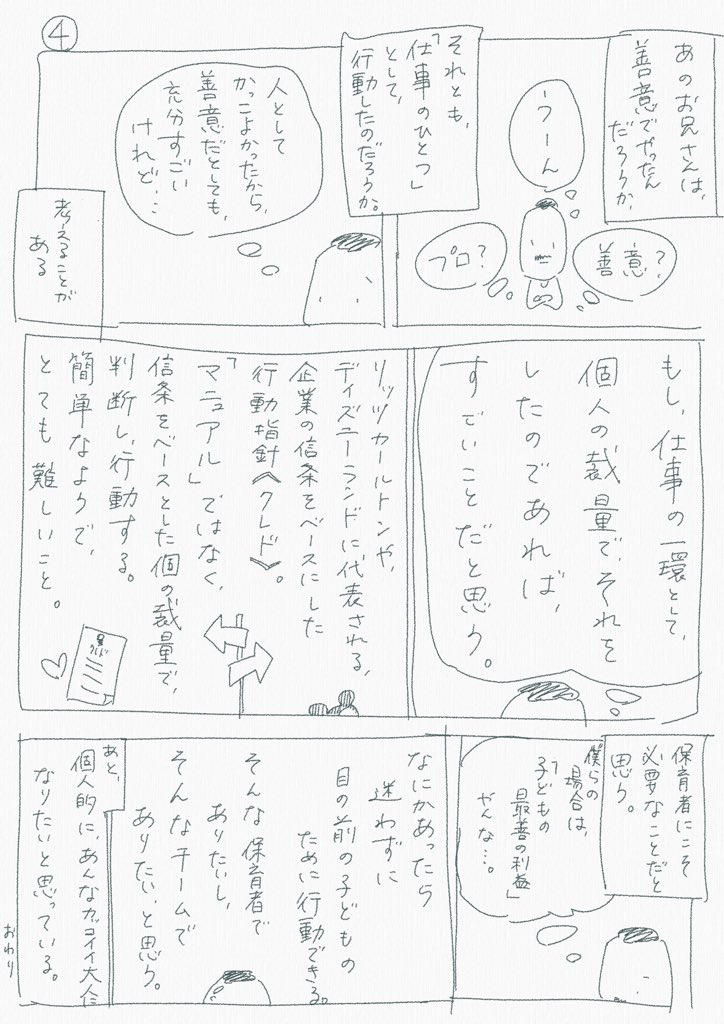 ④
あのお兄さんは、
善意でやったん
だろうか、
うーん
善意?
プロ?
それとも、
「仕事のひとつ」
として、
行動したのだろうか。
人として
かっこよかったから、
善意だとしても、
充分すごい
けれど…
考えることが
ある
もし、仕事の一環として、
個人の裁量で、それを
したのであれば、
すごいことだと思う。
リッツカールトンや、
ディズニーランドに代表される、
企業の信条をベースにした
行動指針《クレド》。
「マニュアル」ではなく、
信条をベースとした個の裁量で、
判断し、行動する。
簡単なようで、
とても難しいこと。
クレド
保育者にこそ
必要なことだと
思う。
僕らの
場合は、
「子どもの
最善の利益」
やんな…。
なにかあったら
迷わずに
目の前の子どもの
ために行動できる。
そんな保育者で
ありたいし、
そんなチームで
ありたい、と思う。
あと、
個人的に、あんなカッコイイ大人に
なりたいと思っている。
おわり